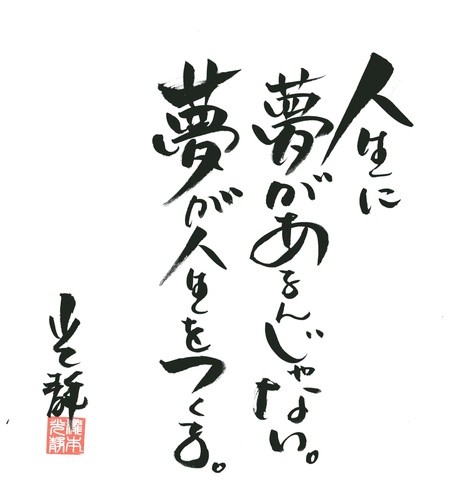 人生に
夢があるんじゃない。
夢が人生をつくる。
光静